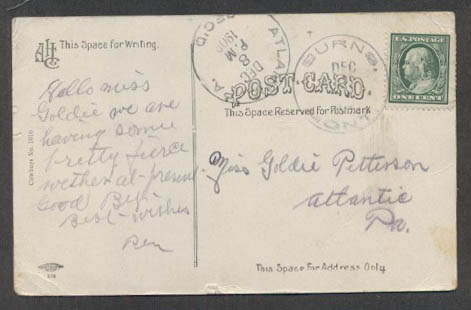 AHC
This Space for Writing.
Hollo miss
Goldie we are
having some
pretty fierce
wether at present
Good Bye
Best wishes
Ben
Cowboys No. 1016
ATLA
DEC
8
P.M
190
BURNS.
DEC
MONT
U.S. POSTAGE
ONE CENT
POST CARD.
This Space Reserved for Postmark
Miss Goldie Petterson
atlantic
Pa.
This Space for Address Only